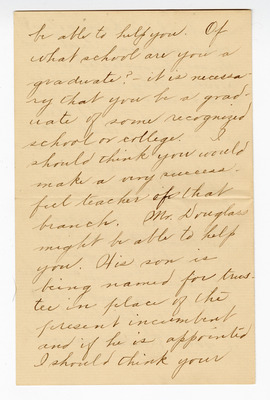 be able to help you. Of
what school are you a
graduate? - it is necessa-
ry that you be a grad-
uate of some recognized
school or college. I
should think you would
make a very success-
ful teacher of that
branch. Mr. Douglass
might be able to help
you. His son is
being named for trus-
tee in place of the
present incumbent
and if he is appointed
I should think your